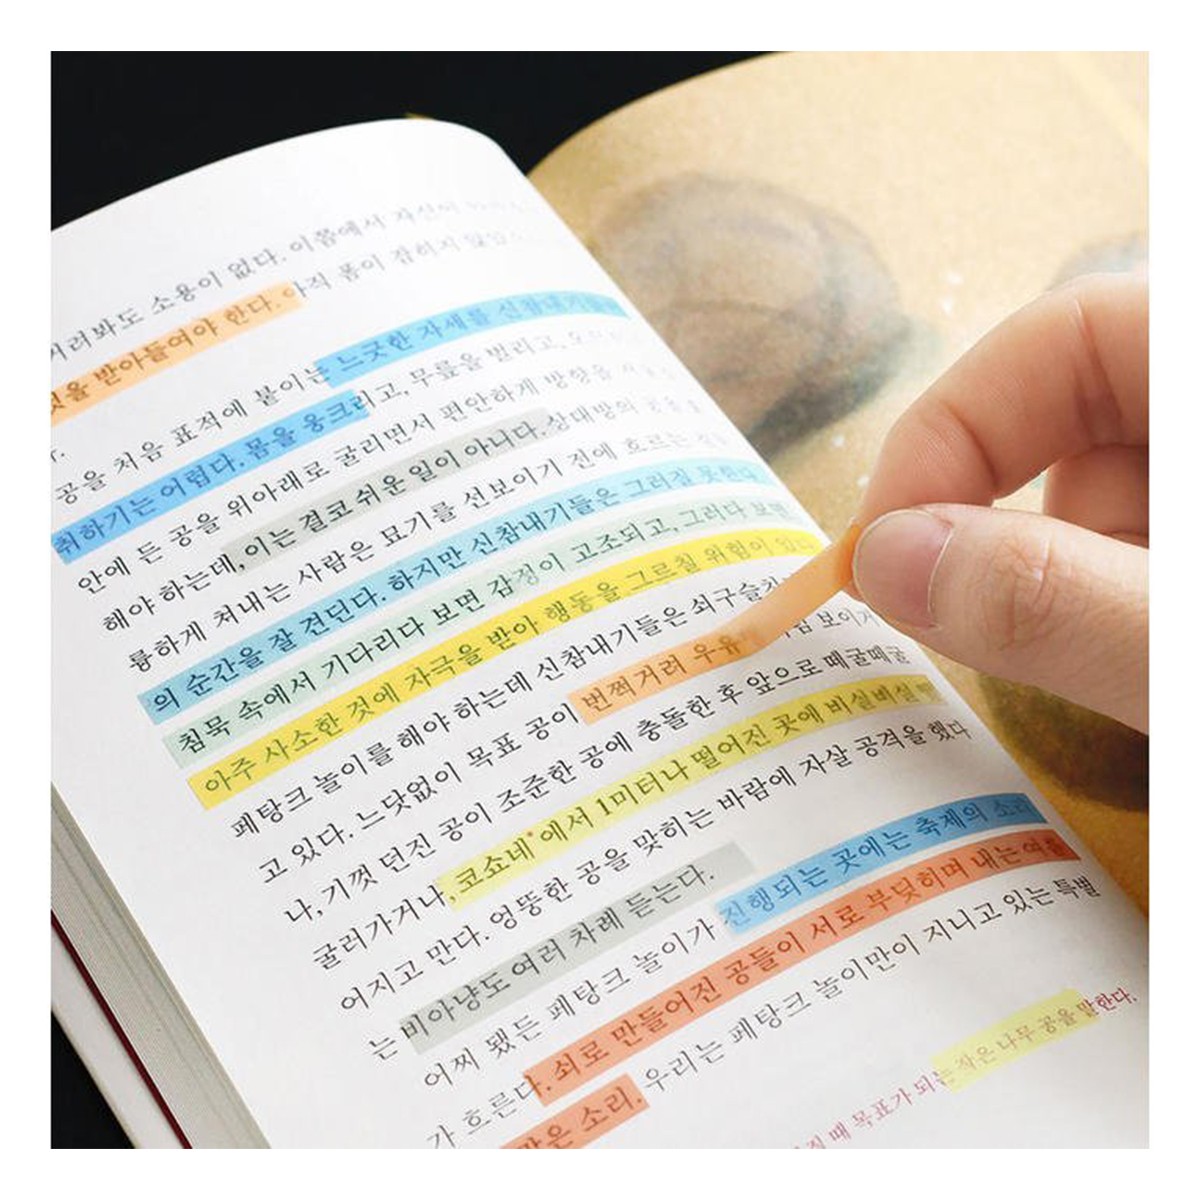 저려봐도 소용이 없다. 이쯤에서 자신이
것을 받아들여야 한다. 아직 폼이 잡히지 않았
다.
공을 처음 표적에 붙이는 느긋한 자세를 신참내기들이
취하기는 어렵다. 몸을 웅크리고, 무릎을 벌리고,
안에 든 공을 위아래로 굴리면서 편안하게 방향을
해야 하는데, 이는 결코 쉬운 일이 아니다. 상대방의 공을
륭하게 쳐내는 사람은 묘기를 선보이기 전에 흐르는
의 순간을 잘 견딘다. 하지만 신참내기들은 그러질 못한다.
침묵 속에서 기다리다 보면 감정이 고조되고, 그러다 보면
아주 사소한 것에 자극을 받아 행동을 그르칠 위험이 있다.
페탕크 놀이를 해야 하는데 신참내기들은 쇠구슬치
고 있다. 느닷없이 목표 공이 번쩍거려 우유 보이지
나, 기껏 던진 공이 조준한 공에 충돌한 후 앞으로 떼굴떼굴
굴러가거나, 코쇼네*에서 1미터나 떨어진 곳에 비실비실
어지고 만다. 엉뚱한 공을 맞히는 바람에 자살 공격을 했다
는 비아냥도 여러 차례 듣는다.
어찌 됐든 페탕크 놀이가 진행되는 곳에는 축제의 소리
가 흐른다. 쇠로 만들어진 공들이 서로 부딪히며 내는
맑은 소리. 우리는 페탕크 놀이만이 지니고 있는 특별
때 목표가 되는 작은 나무 공을 말한다.